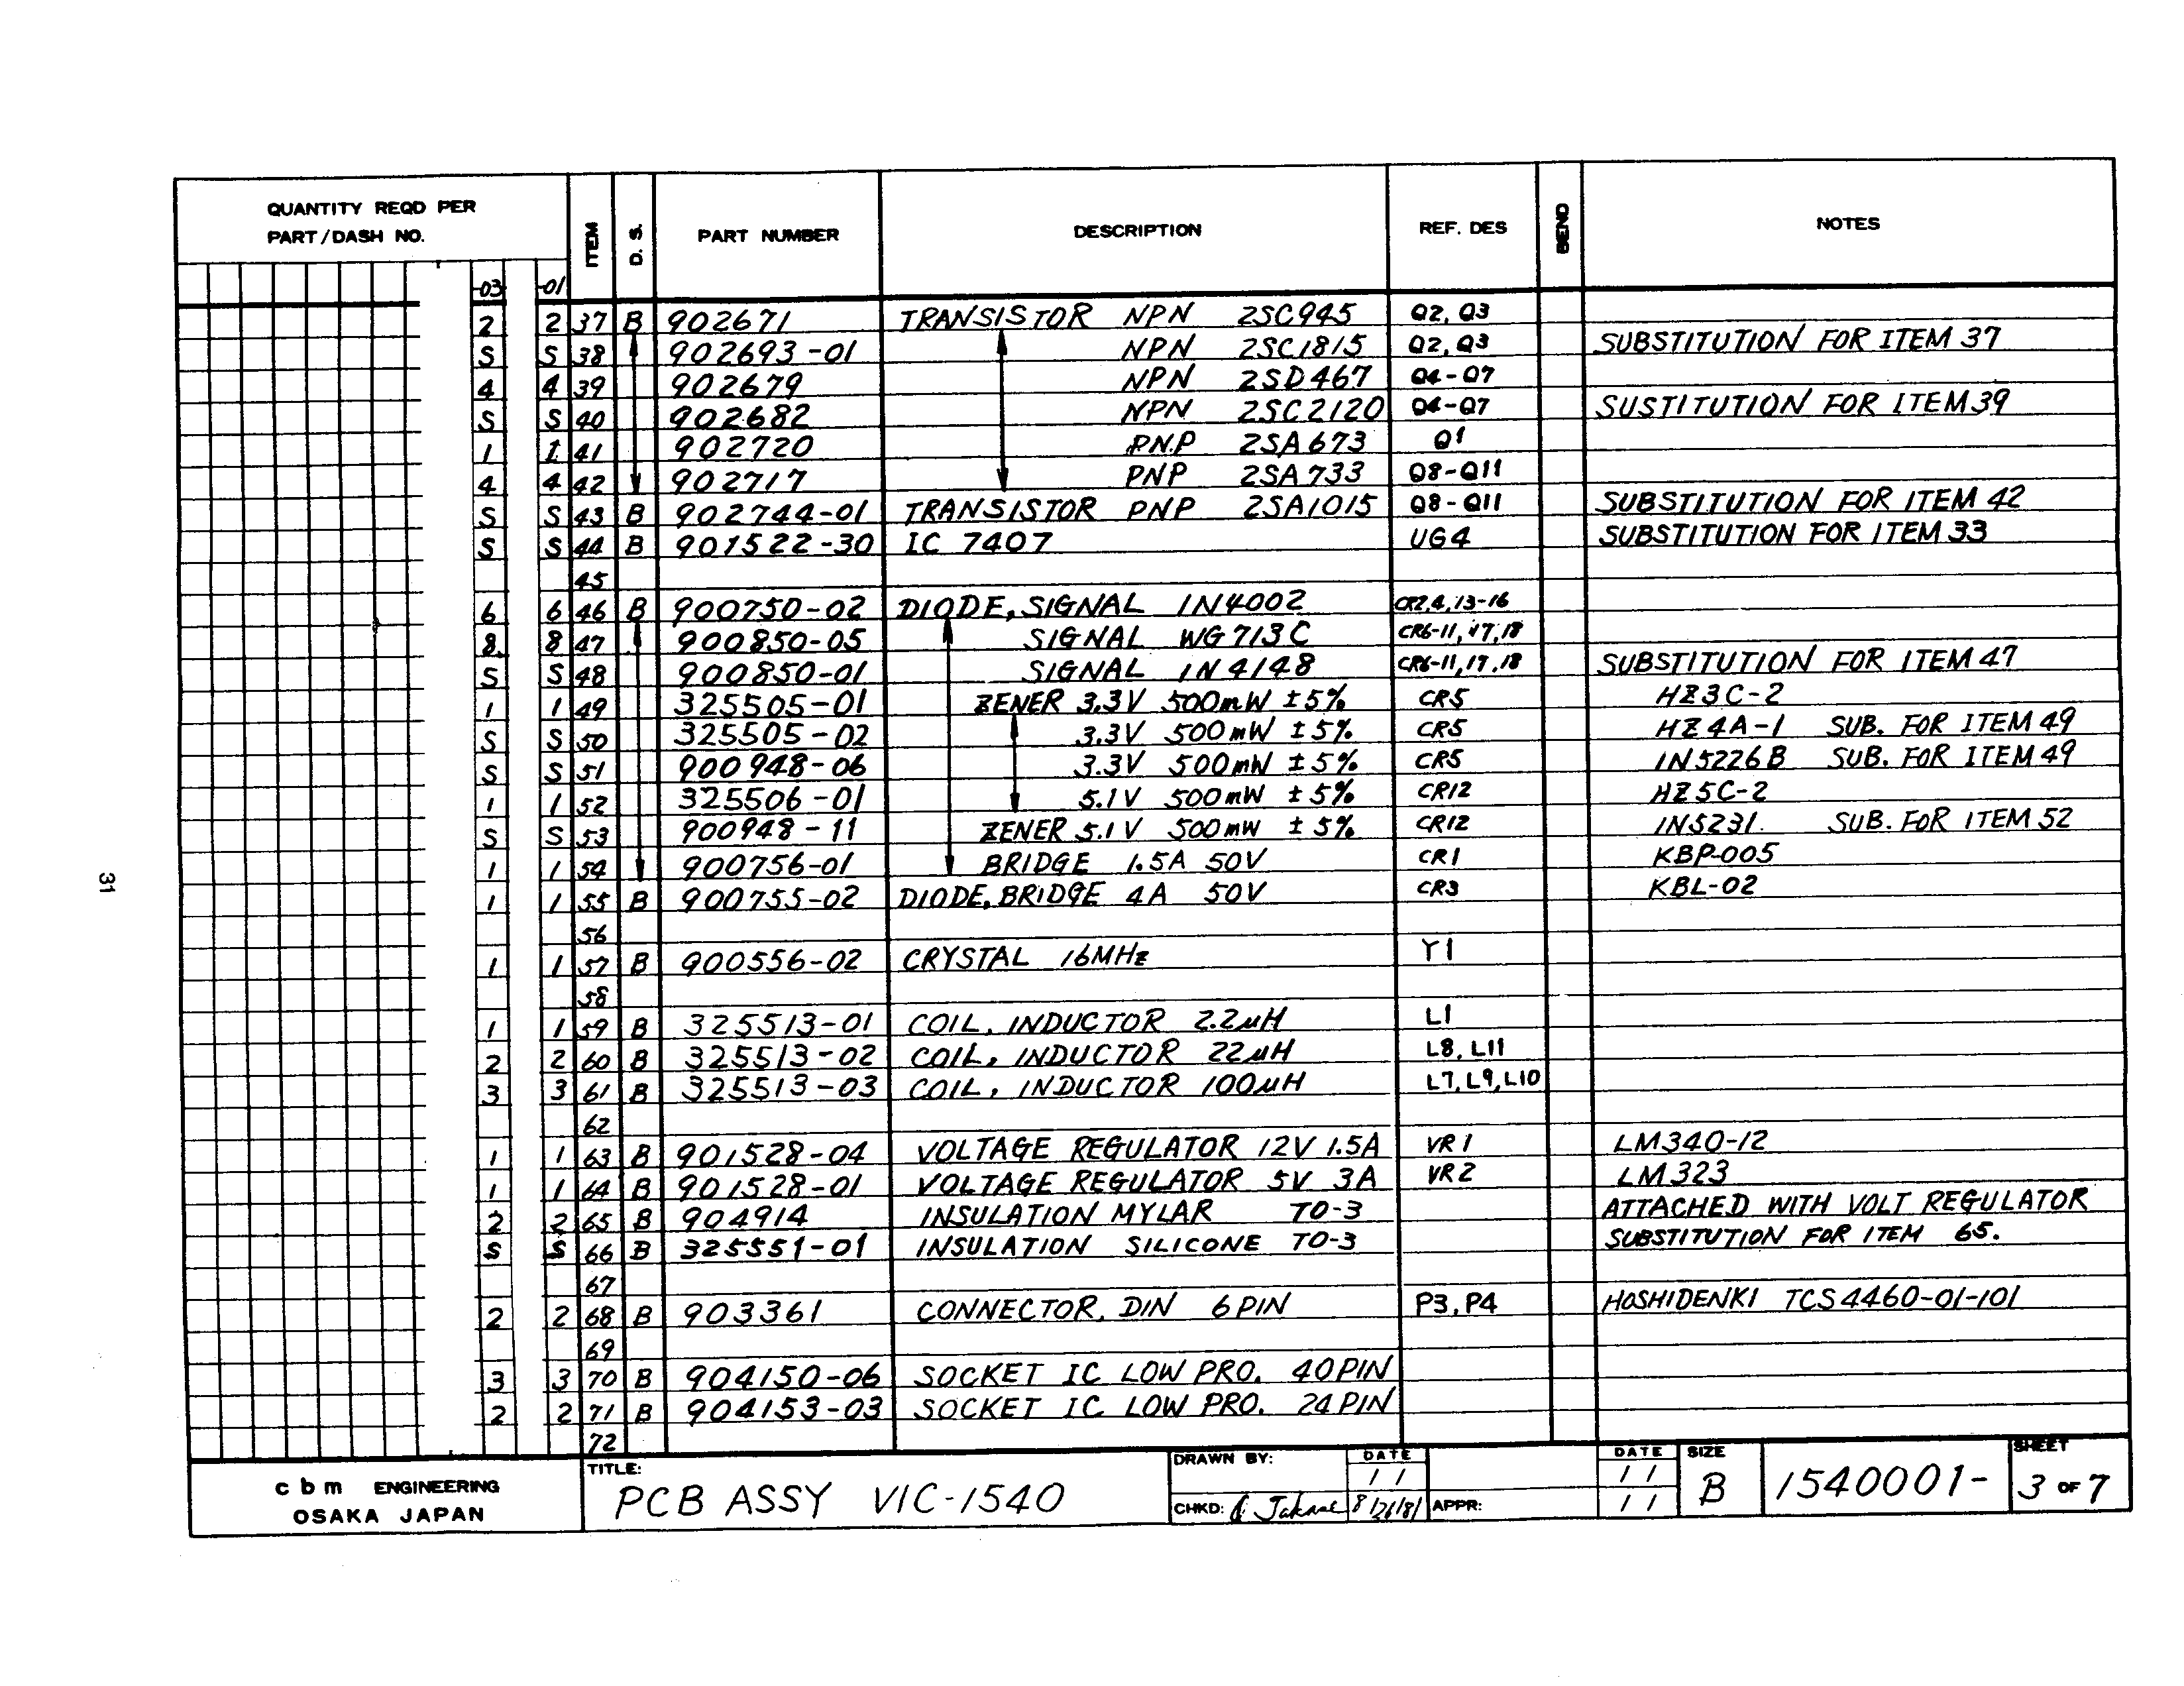 QUANTITY REQD PER
PART/DASH NO.
-03 -01 ITEM D. S. PART NUMBER DESCRIPTION REF. DES BEND NOTES
2 2 37 B 902671 TRANSISTOR NPN 2SC945 Q2, Q3
S S 38 902693-01 NPN 2SC1815 Q2, Q3 SUBSTITUTION FOR ITEM 37
4 4 39 902679 NPN 2SD467 Q4-Q7
S S 40 902682 NPN 2SC2120 Q4-Q7 SUSTITUTION FOR ITEM 39
1 1 41 902720 PNP 2SA673 Q1
4 4 42 902717 PNP 2SA733 Q8-Q11
S S 43 B 902744-01 TRANSISTOR PNP 2SA1015 Q8-Q11 SUBSTITUTION FOR ITEM 42
S S 44 B 901522-30 IC 7407 UG4 SUBSTITUTION FOR ITEM 33
45
6 6 46 B 900750-02 DIODE, SIGNAL 1N4002 CR2,4,13-16
8 8 47 900850-05 SIGNAL WG713C CR6-11,17,18
S S 48 900850-01 SIGNAL 1N4148 CR6-11,17,18 SUBSTITUTION FOR ITEM 47
1 1 49 325505-01 ZENER 3.3V 500mW ±5% CR5 HZ3C-2
S S 50 325505-02 3.3V 500mW ±5% CR5 HZ4A-1 SUB. FOR ITEM 49
S S 51 900948-06 3.3V 500mW ±5% CR5 1N5226B SUB. FOR ITEM 49
1 1 52 325506-01 5.1V 500mW ±5% CR12 HZ5C-2
S S 53 900948-11 ZENER 5.1V 500mW ±5% CR12 1N5231 SUB. FOR ITEM 52
1 1 54 900756-01 BRIDGE 1.5A 50V CR1 KBP-005
1 1 55 B 900755-02 DIODE, BRIDGE 4A 50V CR3 KBL-02
56
1 1 57 B 900556-02 CRYSTAL 16MHz Y1
58
1 1 59 B 325513-01 COIL, INDUCTOR 2.2μH L1
2 2 60 B 325513-02 COIL, INDUCTOR 22μH L8, L11
3 3 61 B 325513-03 COIL, INDUCTOR 100μH L7, L9, L10
62
1 1 63 B 901528-04 VOLTAGE REGULATOR 12V 1.5A VR1 LM340-12
1 1 64 B 901528-01 VOLTAGE REGULATOR 5V 3A VR2 LM323
2 2 65 B 904914 INSULATION MYLAR TO-3 ATTACHED WITH VOLT REGULATOR
S S 66 B 325551-01 INSULATION SILICONE TO-3 SUBSTITUTION FOR ITEM 65.
67
2 2 68 B 903361 CONNECTOR, DIN 6PIN P3, P4 HOSHIDENKI TCS4460-01-101
69
3 3 70 B 904150-06 SOCKET IC LOW PRO. 40PIN
2 2 71 B 904153-03 SOCKET IC LOW PRO. 24PIN
72
cbm ENGINEERING
OSAKA JAPAN
TITLE:
PCB ASSY VIC-1540
DRAWN BY: DATE / /
CHKD: 8/26/81 APPR:
DATE / /
/ /
SIZE
B
1540001-
SHEET
3 OF 7
31